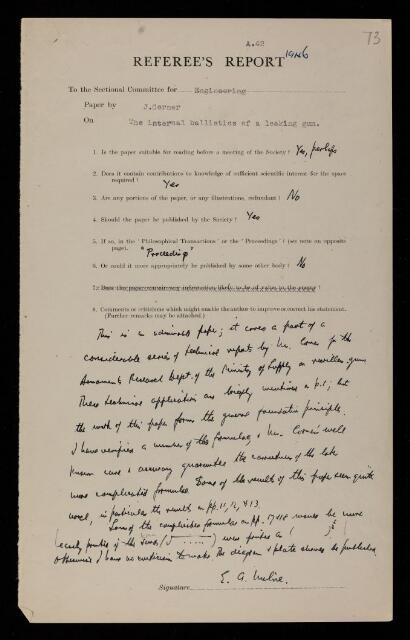 A.42
73
REFEREE'S REPORT 1946
To the Sectional Committee for Engineering
Paper by J. Corner
On The internal ballistics of a leaking gun.
1. Is the paper suitable for reading before a meeting of the Society? Yes, perhaps
2. Does it contain contributions to knowledge of sufficient scientific interest for the space
required? Yes
3. Are any portions of the paper, or any illustrations, redundant? No
4. Should the paper be published by the Society? Yes
5. If so, in the 'Philosophical Transactions' or the 'Proceedings'? (see note on opposite
page). "Proceedings"
6. Or could it more appropriately be published by some other body? No
7. Does the paper contain any information likely to be of value to the enemy?
8. Comments or criticisms which might enable the author to improve or correct his statement.
(Further remarks may be attached.)
This is an admirable paper; it covers a part of a
considerable series of technical reports by Mr. Corner for the
Armaments Research Dept. of the Ministry of Supply on recoilless guns
These technical applications are briefly mentioned on p.1; but
the work of this paper forms the general foundation principle.
I have verified a number of the formulae, & Mr. Corner's well
known care & accuracy guarantee the correctness of the
more complicated formulae. Some of the results of this paper seem quite
novel, in particular the results on pp. 11, 12, & 13.
Some of the complicated formulae on pp. 17, & 18 would be more
easily printed if the surds (√ ..... ) were printed as ( )½
otherwise I have no criticism to make. The diagram & plate should be published.
Signature E. A. Milne.